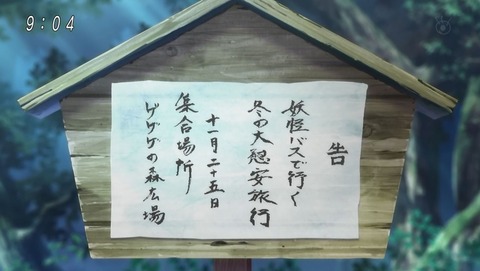 9:04
告
妖怪バスで行く
冬の大慰安旅行
十一月二十五日
集合場所
ゲゲゲの森広場